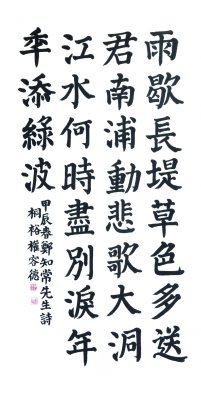 雨歇長堤草色多送
君南浦動悲歌大洞
江水何時盡別淚年
秊添綠波
甲辰春鄭知常先生詩
桐裕權容德